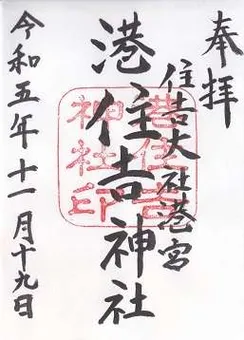 奉拝
住吉大社港宮
港住吉神社
港住吉神社印
令和五年十一月十九日